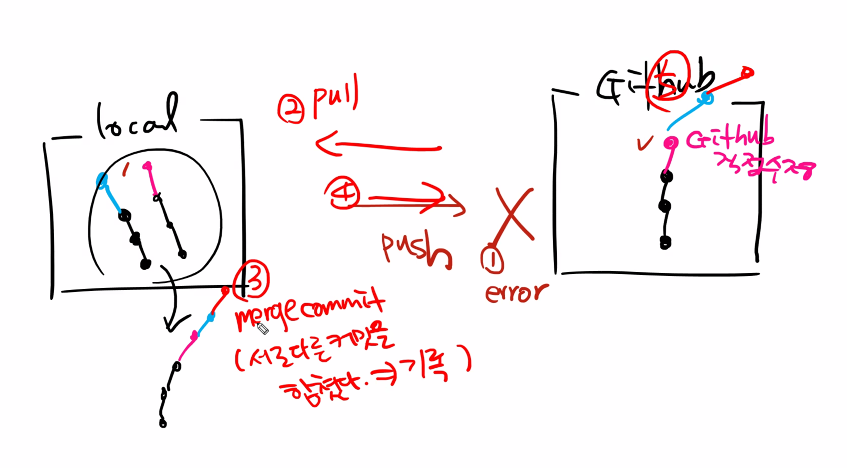 local
② pull
④
push
① error
Github
⑤
Github
직접수정
③
merge commit
(서로다른커밋을
합쳤다. ⇒ 기록)